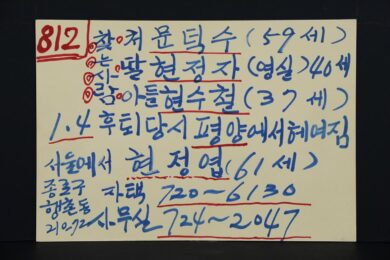 812
찾는사람
처 문덕수 (59세)
딸 현정자 (영실) 40세
아들 현수철 (37세)
1.4 후퇴당시 평양에서 헤여짐
서울에서 현정엽 (61세)
종로구 행촌동 210-72
자택 720~6130
사무실 724~2047